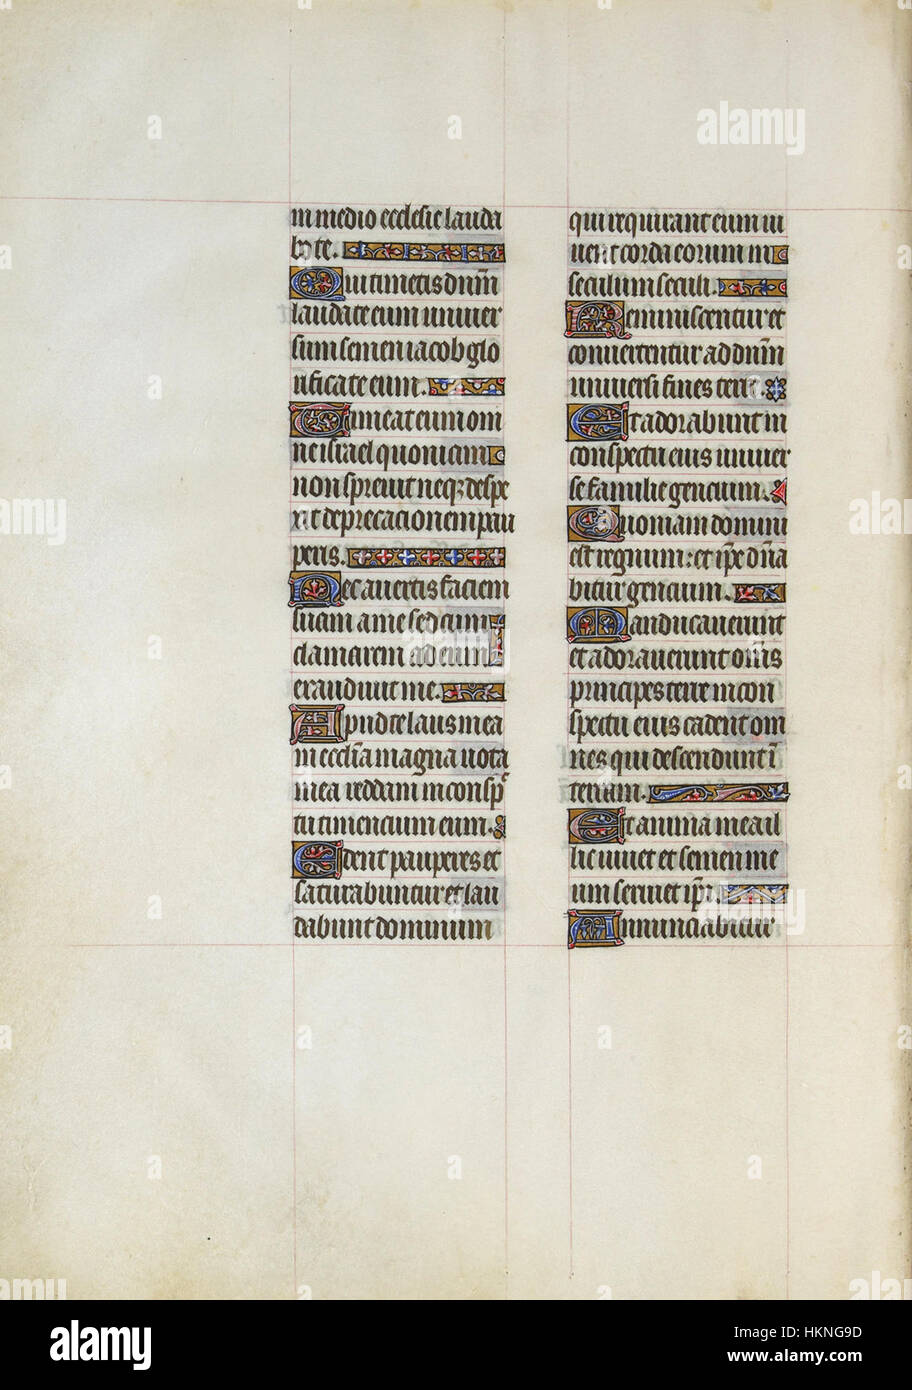 in medio ecclesie lauda
bo te.
Qui timetis dnm
laudate eum univer
sum semen iacob glo
rificate eum.
Timeat eum om
ne israel quoniam
non sprevit neqz despe
xit deprecationem pau
peris.
Nec avertit faciem
suam a me sed cum
clamarem ad eum
exaudivit me.
Apud te laus mea
in ecclia magna vota
mea reddam in consp
tu timencium eum.
Edent pauperes et
saturabuntur et lau
dabunt dominum
qui requirunt eum vi
vent corda eorum in
seculum seculi.
Reminiscentur et
convertentur ad dnm
universi fines terre
Et adorabunt in
conspectu eius univer
se familie gencium.
Quoniam domini
est regnum: et ipe dna
bitur gencium.
Manducaverunt
et adoraverunt omis
principes terre in con
spectu eius cadent om
nes qui descendunt i
terram.
Et anima mea il
li vivet et semen me
um serviet ipi.
Annunciabitur
a
alamy
a
alamy
www.alamy.com
Image ID: HKNG9D